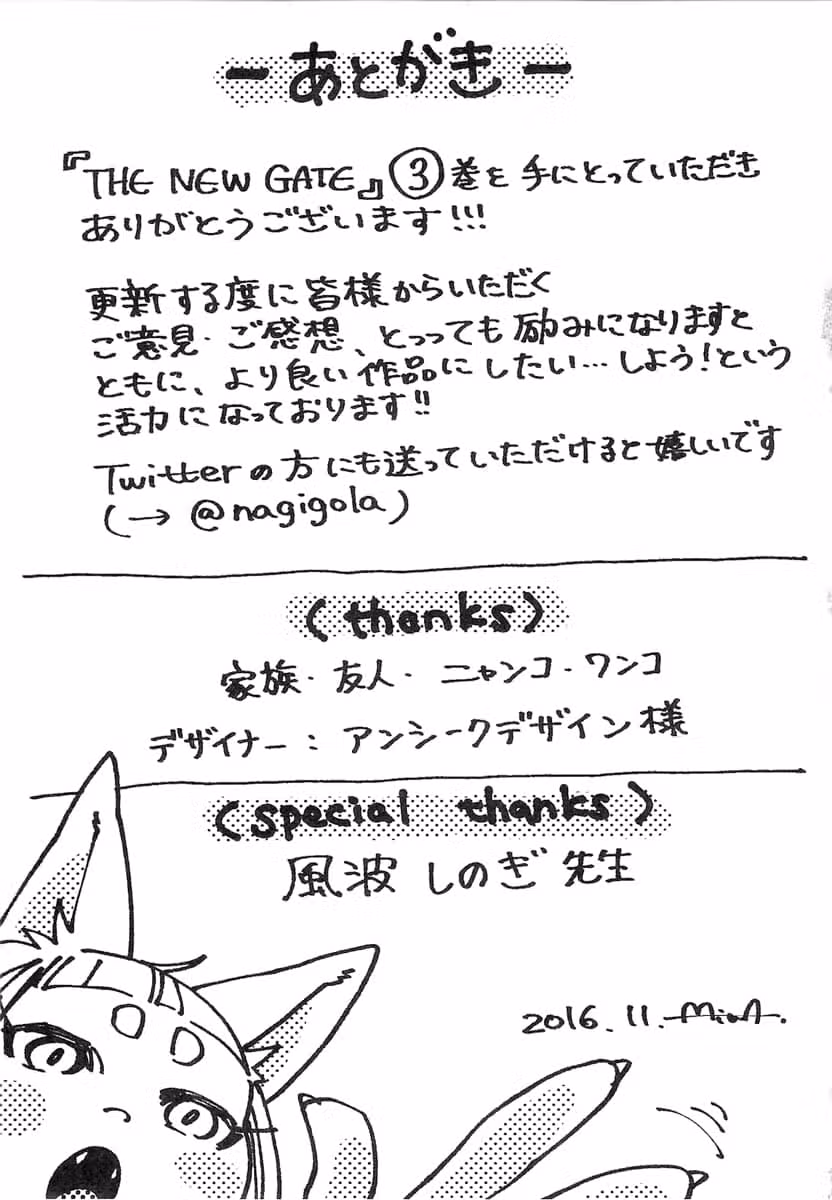 ーあとがきー
『THE NEW GATE』③巻を手にとっていただき
ありがとうございます!!!
更新する度に皆様からいただく
ご意見・ご感想、とっっても励みになりますと
ともに、より良い作品にしたい…しよう!という
活力になっております!!
Twitterの方にも送っていただけると嬉しいです
(→ @nagigola)
(thanks)
家族・友人・ニャンコ・ワンコ
デザイナー:アンシークデザイン様
(special thanks)
風波しのぎ先生
2016.11.